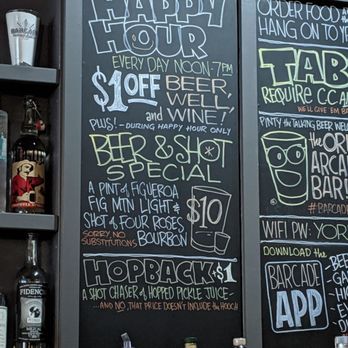 BARCADE
HAPPY
HOUR
EVERY DAY NOON-7PM
$1 OFF BEER,
WELL,
and
WINE!
PLUS! -DURING HAPPY HOUR ONLY
BEER & SHOT
SPECIAL
A PINT of FIGUEROA
FIG MTN LIGHT &
SHOT of FOUR ROSES
BOURBON
SORRY, NO
SUBSTITUTIONS
$10
HOPBACK +$1
A SHOT CHASER of HOPPED PICKLE JUICE-
...AND NO, THAT PRICE DOESN'T INCLUDE the HOOCH
ORDER FOOD
HANG ON TO
TAB
REQUIRE CC
WE'LL GIVE 'EM
PINTY the TALKING BEER
the OR
ARCA
BAR!
#BARCAD
WIFI PW:
DOWNLOAD the
BARCADE
APP
FIDENC